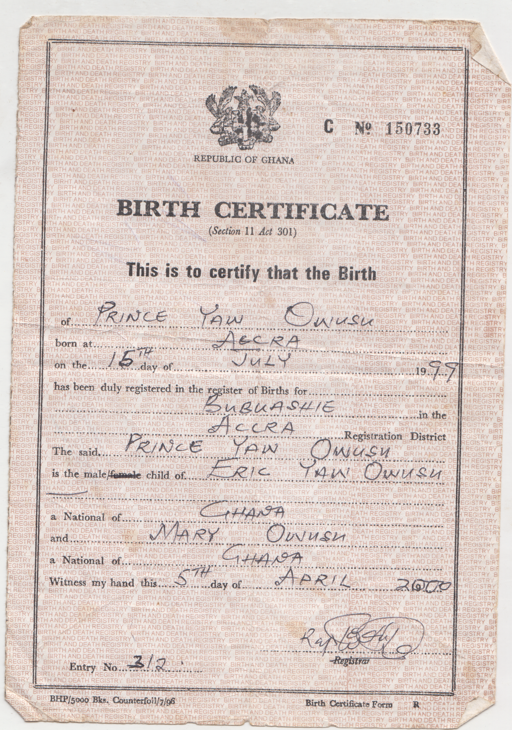 C Nº 150733
REPUBLIC OF GHANA
BIRTH CERTIFICATE
(Section 11 Act 301)
This is to certify that the Birth
of PRINCE YAW OWUSU
born at ACCRA
on the 15TH day of JULY 1999
has been duly registered in the register of Births for
BUBUASHIE in the
ACCRA Registration District
The said PRINCE YAW OWUSU
is the male/female child of ERIC YAW OWUSU
a National of GHANA
and MARY OWUSU
a National of GHANA
Witness my hand this 5TH day of APRIL 2000
Registrar
Entry No. 312
BHP/5000 Bks. Counterfoil/7/98 Birth Certificate Form R